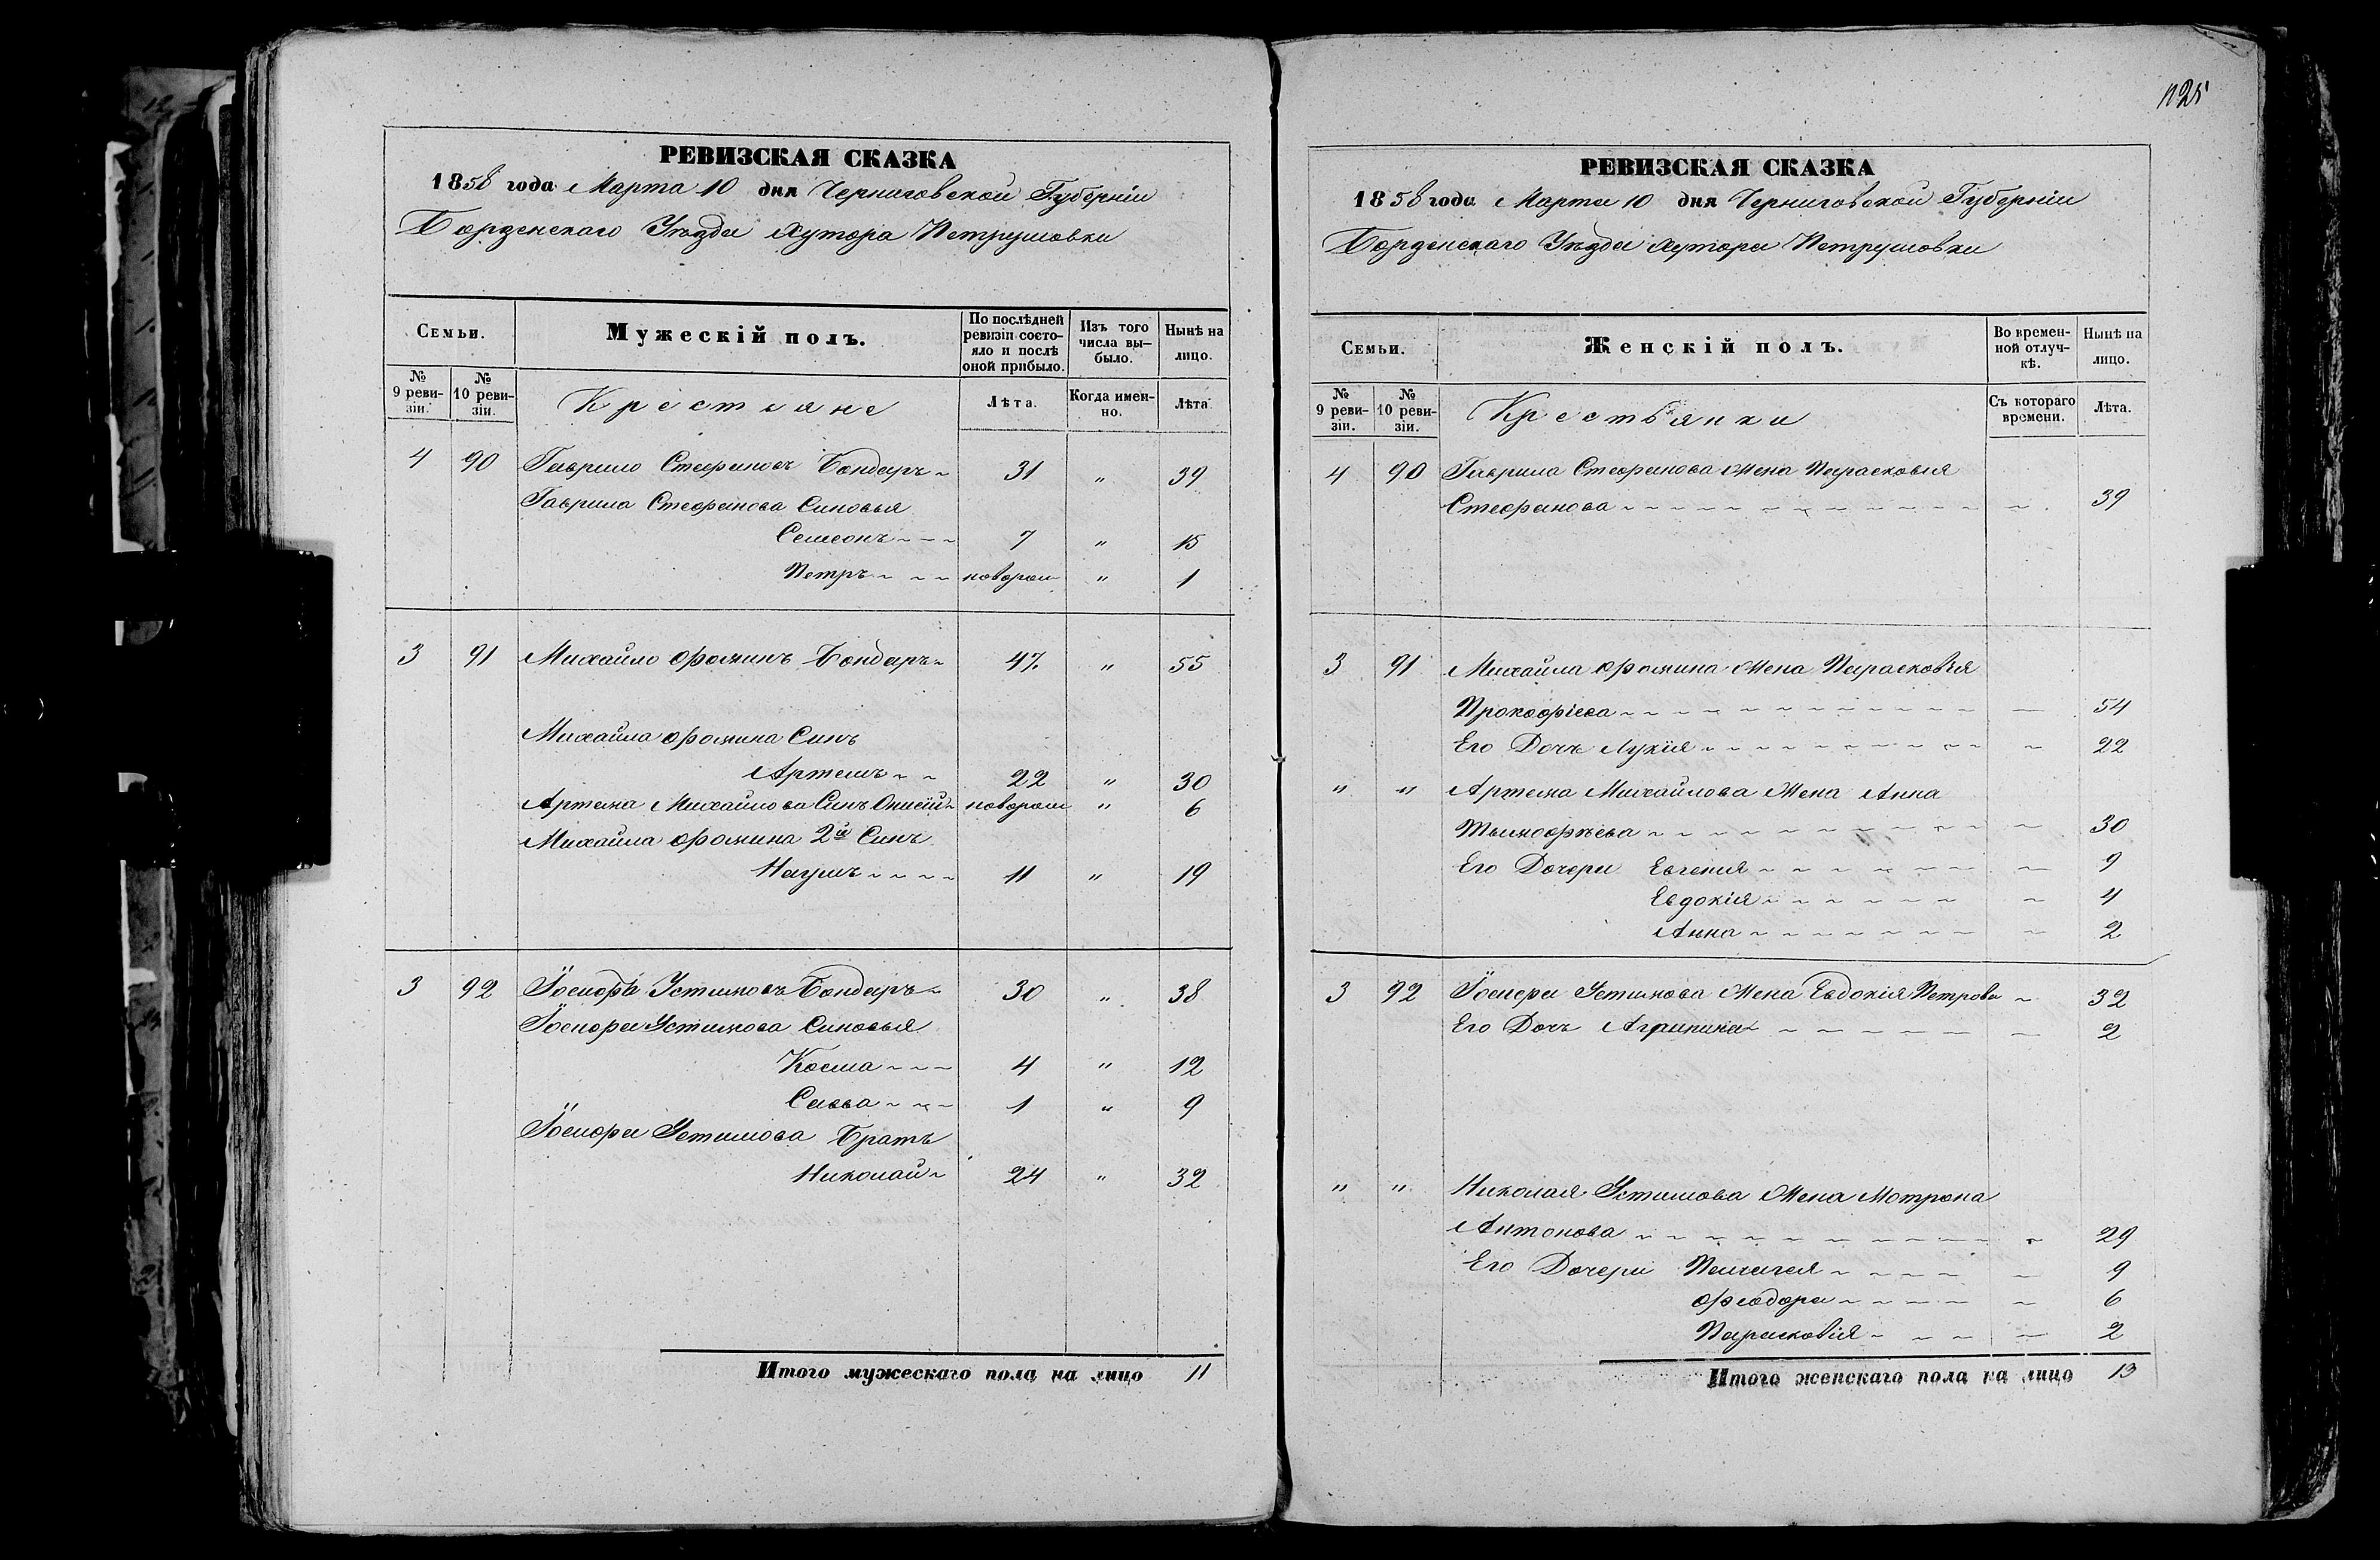 РЕВИЗСКАЯ СКАЗКА
1858 года Марта 10 дня Черниговской Губерніи
Борзенскаго Уѣзда Хутора Петрушовки
Семьи.
Мужескій полъ.
По послѣдней ревизіи состояло и послѣ оной прибыло.
Изъ того числа вы-было.
Нынѣ на лицо.
№ 9 реви-зіи.
№ 10 реви-зіи.
Крестьяне
Лѣта.
Когда имен-но.
Лѣта.
4 90 Гаврило Стефановъ Бондаръ 31 " 39
Гаврила Стефанова Синовья
Семеонъ 7 " 15
Петръ поворож " 1
3 91 Михайло Фоминъ Бондаръ 47. " 55
Михайла Фомина Синъ
Артемъ 22 " 30
Артема Михайлова Синъ Онисій новорож " 6
Михайла Фомина 2й Синъ
Наумъ 11 " 19
3 92 Іосифъ Устимовъ Бондаръ 30 " 38
Іосифа Устимова Синовья
Косма 4 " 12
Савва 1 " 9
Іосифа Устимова Братъ
Николай 24 " 32
Итого мужескаго пола на лицо 11
РЕВИЗСКАЯ СКАЗКА
1858 года Марта 10 дня Черниговской Губерніи
Борзенскаго Уѣзда Хутора Петрушовки
Семьи.
Женскій полъ.
Во времен-ной отлуч-кѣ.
Нынѣ на лицо.
№ 9 реви-зіи.
№ 10 реви-зіи.
Крестьянки
Съ котораго времени.
Лѣта.
4 90 Гаврила Стефанова Жена Парасковія
Стефанова 39
3 91 Михайла Фомина Жена Парасковія
Прокофіева 54
Его Дочъ Лукія 22
" " Артема Михайлова Жена Анна
30
Его Дочери Евгенія 9
Евдокія 4
Анна 2
3 92 Іосифа Устимова Жена Евдокія Петрова 32
Его Дочъ Агрипина 2
" " Николая Устимова Жена Мотрона
Антонова 29
Его Дочери Пелагея 9
Феодора 6
Парасковія 2
Итого женскаго пола на лицо 13